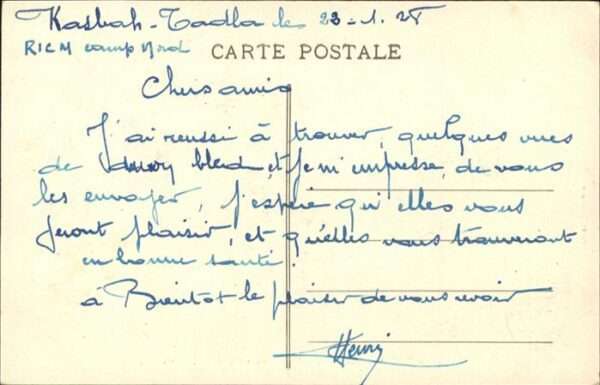 Kasbah-Tadla les 23-1.28
RICM camp Nord
CARTE POSTALE
Chers amis
J'ai reussi à trouver, quelques vues
de bled, et je m'empresse, de vous
les envoyer, j'espère qu'elles vous
feront plaisir, et qu'elles vous trouveront
en bonne santé.
à Bientot le plaisir de vous voir
Henri